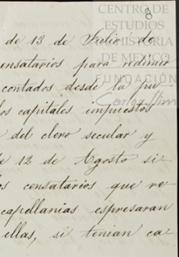 8
CENTRO DE
ESTUDIOS
DE HISTORIA
DE MEXICO
FUNDACIÓN
Carlos Slim
de 13 de Julio de
ensatarios para redimir
contados desde la pu
los capitales impuestos
del clero secular y
de 12 de Agosto si
los censatarios que re
capellanias espresaran
ellas, si tenian ca